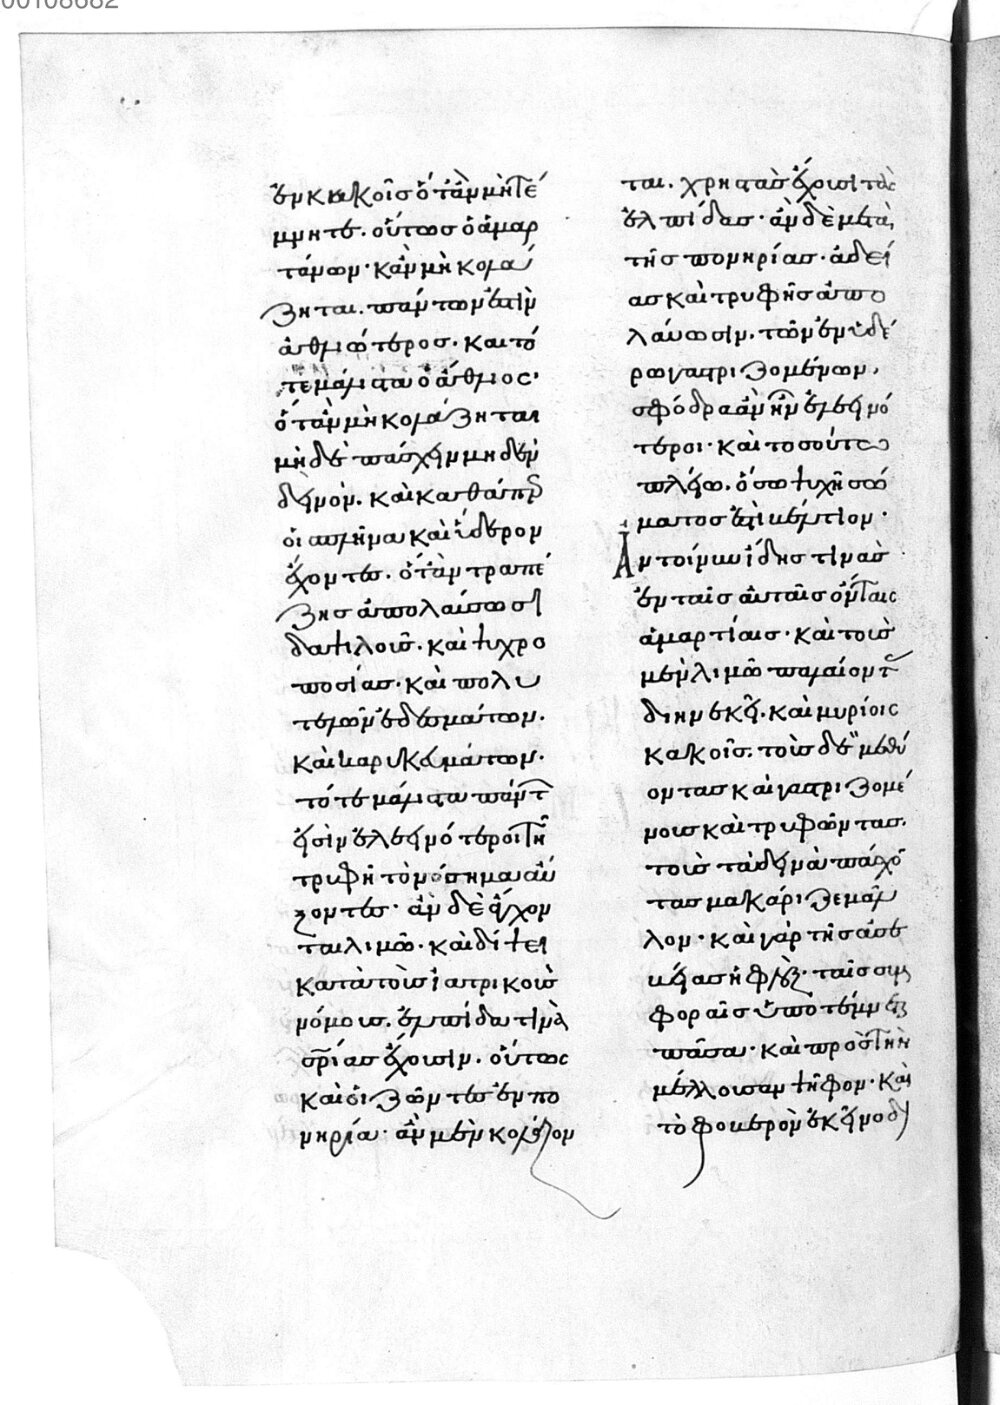 00108682
ἐν κακοῖσ ὅταν μὴ τέ
μνητε. οὕτωσ ὁ ἁμαρ
τάνων· κἂν μὴ κολά
ζηται. πάντων ἐστὶν
ἀθλιώτεροσ. καὶ τό
τε μάλιστα ὁ ἄθλιος·
ὅταν μὴ κολάζηται
μὴ δὲ πάσχειν μηδὲν
δεινόν. καὶ καθάπερ
οἱ σπλῆνα καὶ ὕδερον
ἔχοντεσ. ὅταν τραπέ
ζησ ἀπολαύσωσι
δαψιλοῦσ. καὶ ψυχρο
ποσίασ. καὶ πολυ
τελῶν ἐδεσμάτων.
καὶ καρυκευμάτων·
τότε μάλιστα πάντ
εἰσὶν ἐλεεινότεροι τῆ
τρυφῆ τὸ νόσημα αὔ
ξοντεσ· ἂν δὲ ἄγχον
ται λιμῶ. καὶ δίψει
κατὰ τοὺσ ἰατρικοὺσ
νόμουσ. ἐλπίδα τινὰ
σρίασ ἔχουσιν. οὕτως
καὶ οἱ ζῶντεσ ἐν πο
νηρία· ἂν μὲν κολάζον
ται. χρηστὰσ ἔχουσι τὰς
ἐλπίδασ· ἂν δὲ μετὰ
τῆσ πονηρίασ. ἀδεί
ασ καὶ τρυφῆσ ἀπο
λαύωσιν. τῶν ἐν ὑδέ
ρω γαστριζομένων,
σφόδρα ἂν ἦν ἐλεεινό
τεροι· καὶ τοσούτω
πλείω. ὅσω ψυχῆ σώ
ματοσ ἐπικέντιον·
Ἂν τοίνυν ἴδησ τινὰσ
ἐν ταῖσ αὐταῖσ ὄντας
ἁμαρτίαισ· καὶ τοὺσ
μὲν λιμῶ παλαίοντ
διηνεκῶ. καὶ μυρίοις
κακοῖσ. τοὺσ δὲ μεθύ
οντασ καὶ γαστριζομέ
νουσ καὶ τρυφῶντασ.
τοὺσ τὰ δεινὰ πάσχον
τασ μακάριζε μᾶλ
λον· καὶ γὰρ τῆσ ἀσε
λγείασ ἡ φλὸξ· ταῖσ συμ
φοραῖσ ὑποτέμνεται
πᾶσα· καὶ πρὸσ τὴν
μέλλουσαν ψῆφον· καὶ
τὸ φοβερὸν ἐκεῖνο δι